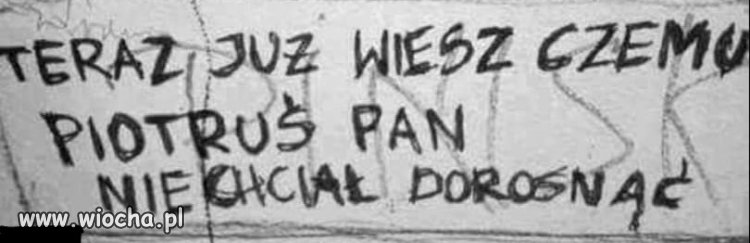 TERAZ JUŻ WIESZ CZEMU
PIOTRUŚ PAN
NIE CHCIAŁ DOROSNĄĆ
www.wiocha.pl